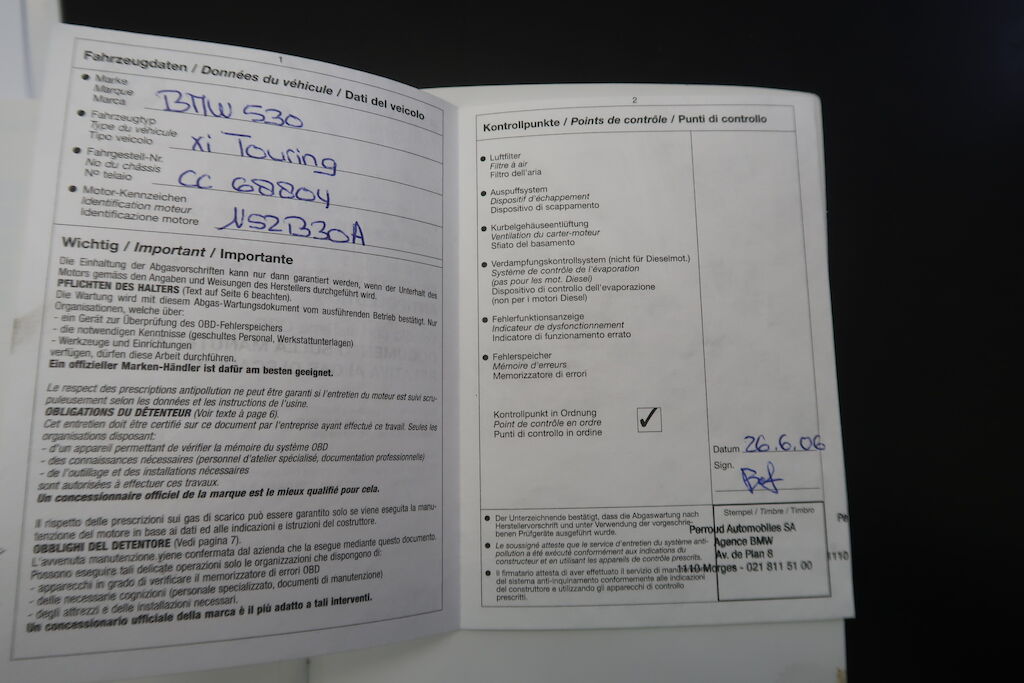 1
Fahrzeugdaten / Données du véhicule / Dati del veicolo
• Marke
Marque
Marca
BMW 530
• Fahrzeugtyp
Type du véhicule
Tipo veicolo
xi Touring
• Fahrgestell-Nr.
No du châssis
Nº telaio
CC 68804
• Motor-Kennzeichen
Identification moteur
Identificazione motore
N52B30A
Wichtig / Important / Importante
Die Einhaltung der Abgasvorschriften kann nur dann garantiert werden, wenn der Unterhalt des
Motors gemäss den Angaben und Weisungen des Herstellers durchgeführt wird.
PFLICHTEN DES HALTERS (Text auf Seite 6 beachten).
Die Wartung wird mit diesem Abgas-Wartungsdokument vom ausführenden Betrieb bestätigt. Nur
Organisationen, welche über:
- ein Gerät zur Überprüfung des OBD-Fehlerspeichers
- die notwendigen Kenntnisse (geschultes Personal, Werkstattunterlagen)
- Werkzeuge und Einrichtungen
verfügen, dürfen diese Arbeit durchführen.
Ein offizieller Marken-Händler ist dafür am besten geeignet.
Le respect des prescriptions antipollution ne peut être garanti si l'entretien du moteur est suivi scru-
puleusement selon les données et les instructions de l'usine.
OBLIGATIONS DU DÉTENTEUR (Voir texte à page 6).
Cet entretien doit être certifié sur ce document par l'entreprise ayant effectué ce travail. Seules les
organisations disposant:
- d'un appareil permettant de vérifier la mémoire du système OBD
- des connaissances nécessaires (personnel d'atelier spécialisé, documentation professionnelle)
- de l'outillage et des installations nécessaires
sont autorisées à effectuer ces travaux.
Un concessionnaire officiel de la marque est le mieux qualifié pour cela.
Il rispetto delle prescrizioni sui gas di scarico può essere garantito solo se viene eseguita la manu-
tenzione del motore in base ai dati ed alle indicazioni e istruzioni del costruttore.
OBBLIGHI DEL DETENTORE (Vedi pagina 7).
L'avvenuta manutenzione viene confermata dal azienda che la esegue mediante questo documento.
Possono eseguire tali delicate operazioni solo le organizzazioni che dispongono di:
- apparecchi in grado di verificare il memorizzatore di errori OBD
- delle necessarie cognizioni (personale specializzato, documenti di manutenzione)
- degli attrezzi e delle installazioni necessari.
Un concessionario ufficiale della marca è il più adatto a tali interventi.
2
Kontrollpunkte / Points de contrôle / Punti di controllo
• Luftfilter
Filtre à air
Filtro dell'aria
• Auspuffsystem
Dispositif d'échappement
Dispositivo di scappamento
• Kurbelgehäuseentlüftung
Ventilation du carter-moteur
Sfiato del basamento
• Verdampfungskontrollsystem (nicht für Dieselmot.)
Système de contrôle de l'évaporation
(pas pour les mot. Diesel)
Dispositivo di controllo dell'evaporazione
(non per i motori Diesel)
• Fehlerfunktionsanzeige
Indicateur de dysfonctionnement
Indicatore di funzionamento errato
• Fehlerspeicher
Mémoire d'erreurs
Memorizzatore di errori
Kontrollpunkt in Ordnung
Point de contrôle en ordre
Punti di controllo in ordine
✓
Datum 26.6.06
Sign.
• Der Unterzeichnende bestätigt, dass die Abgaswartung nach
Herstellervorschrift und unter Verwendung der vorgeschrie-
benen Prüfgeräte ausgeführt wurde.
• Le soussigné atteste que le service d'entretien du système anti-
pollution a été exécuté conformément aux indications du
constructeur et en utilisant les appareils de contrôle prescrits.
• Il firmatario attesta di aver effettuato il servizio di
del sistema anti-inquinamento conformemente alle indicazioni
del construttore e utilizzando gli apparecchi di controllo
prescritti.
Stempel / Timbre / Timbro
Perroud Automobiles SA
Agence BMW
Av. de Plan 8
1110 Morges - 021 811 51 00
Pe
1110